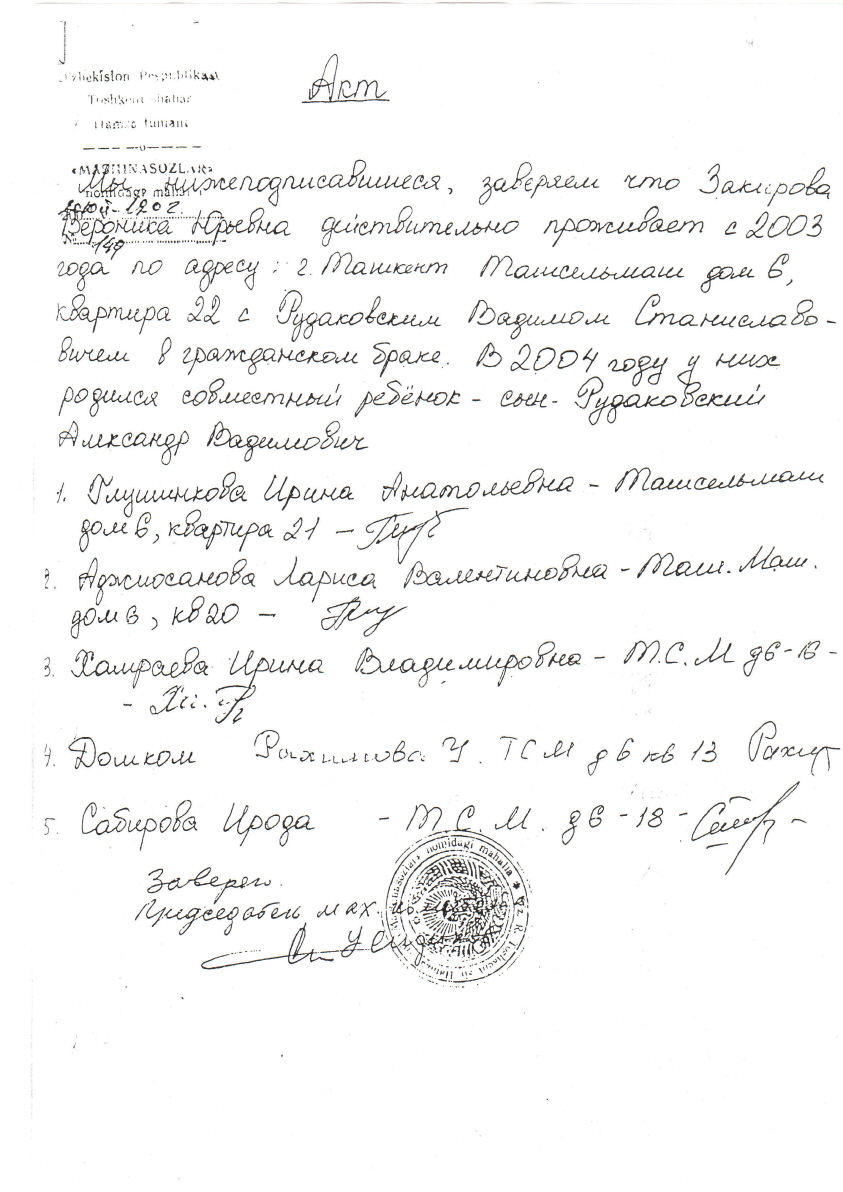 O'zbekiston Respublikasi
Toshkent shahar
Hamza tumani
«MASHINASOZLAR»
nomidagi mahalla
№ 149
Акт
Мы нижеподписавшиеся, заверяем что Закирова
Вероника Юрьевна действительно проживает с 2003
года по адресу: г. Ташкент Ташсельмаш дом 6,
квартира 22 с Рудаковским Вадимом Станиславо-
вичем в гражданском браке. В 2004 году у них
родился совместный ребёнок - сын - Рудаковский
Александр Вадимович
1. Глушинкова Ирина Анатольевна - Ташсельмаш
дом 6, квартира 21 -
2. Аджиосанова Лариса Валентиновна - Таш. Маш.
дом 6, кв 20 -
3. Хамраева Ирина Владимировна - Т.С.М д6-16-
4. Домком Рахимова У. ТСМ д6 кв 13
5. Сабирова Ирода - Т.С.М. д6-18-
Заверяю.
Председатель мах.
Mashinasozlar nomidagi mahalla